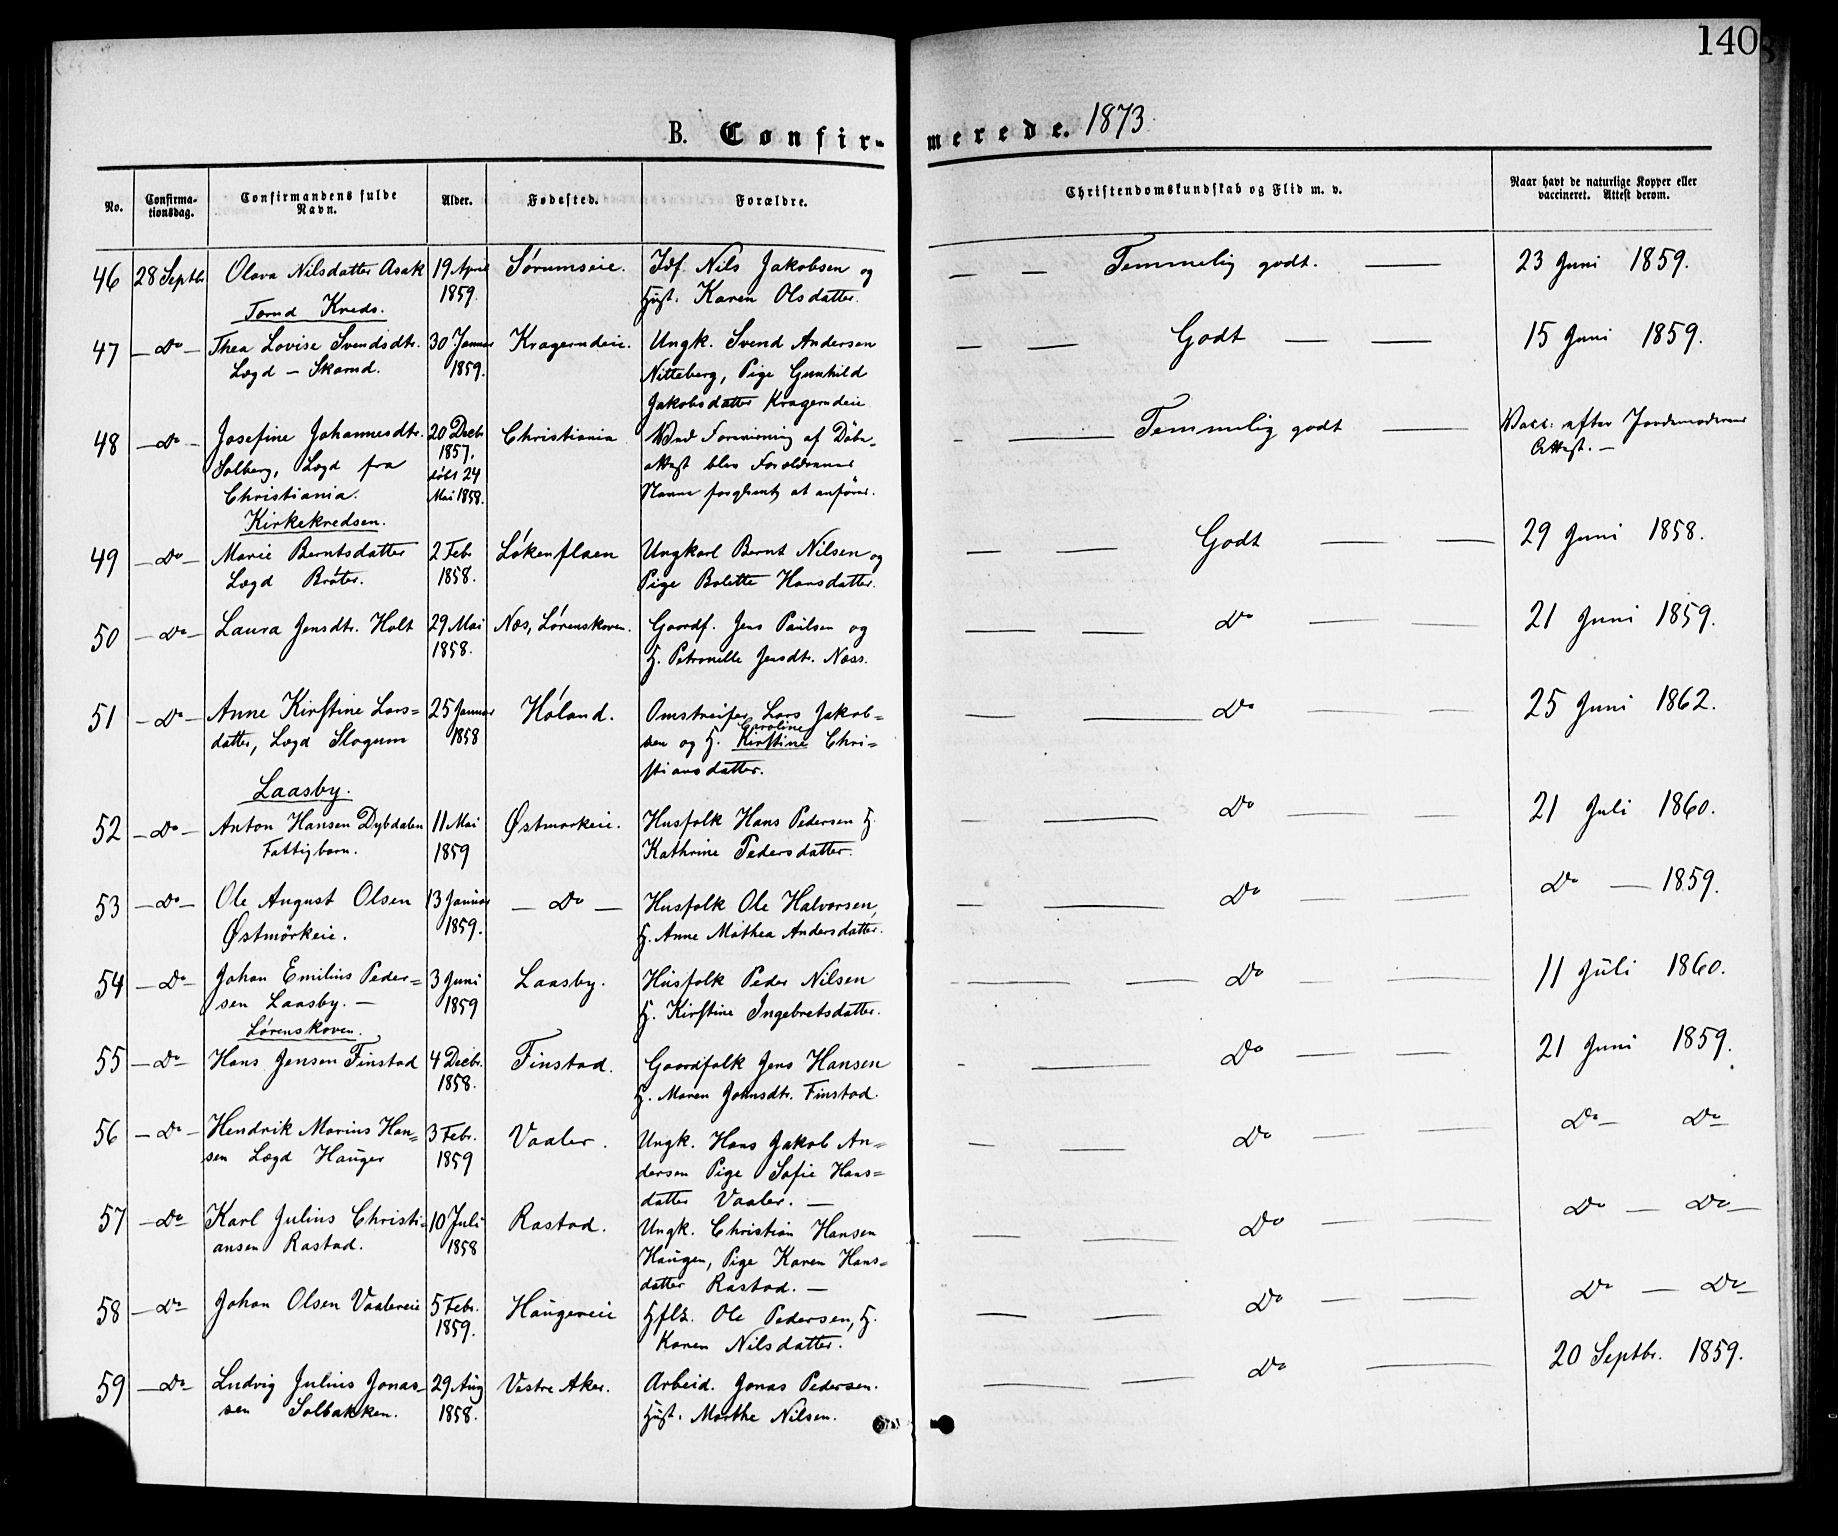 140
B. Confir-merede. 1873.
No.
Confirma-
tionsdag.
Confirmandens fulde
Navn.
Alder.
Fødested.
Forældre.
Christendomskundskab og Flid m. v.
Naar havt de naturlige Kopper eller
vaccineret. Attest derom.
46 28 Septbr. Olava Nilsdatter Asak 19 April Sørumseie. Idf. Nils Jakobsen og — — Temmelig godt. — 23 Juni 1859.
1859. Hust. Karen Olsdatter.
Tomd Kreds.
47 — Do — Thea Lovise Svendsdtr. 30 Januar Kragerudeie. Ungk. Svend Andersen — — Godt — — 15 Juni 1859.
Lægd — Skarud. 1859. Nitteberg, Pige Gunhild
Jakobsdatter Kragerudeie
48 — Do — Josefine Johannesdtr. 20 Decbr Christiania Ved Forevisning af Døbe- — — Temmelig godt — Vacc: efter Jordemoderens
Solberg, Lægd fra 1857. attest blev Forældrenes Attest. —
Christiania. døbt 24 Navne forglemt at anføres.
Mai 1858.
Kirkekredsen.
49 — Do — Marie Berntsdatter 2 Feb Løkenflaen Ungkarl Bernt Nilsen og — — Godt — — 29 Juni 1858.
Lægd Bråter. 1858. Pige Bolette Hansdatter.
50 — Do — Laura Jensdtr. Holt 29 Mai Næs, Lørenskoven. Gaardf. Jens Paulsen og — — Do — — 21 Juni 1859.
1858. H. Petronelle Jensdtr. Næss.
51 — Do — Anne Kirstine Lars= 25 Januar Høland. Omstreifer Lars Jakob= — — Do — — 25 Juni 1862.
Caroline
datter, Lægd Slogum 1858 sen og H. Kirstine Chri=
stiansdatter.
Laasby.
52 — Do — Anton Hansen Dybdalen 11 Mai Østmorkeie. Husfolk Hans Pedersen H. — — Do — — 21 Juli 1860.
Fattigbarn. 1859 Kathrine Pedersdatter.
53 — Do — Ole August Olsen 13 Januar — Do — Husfolk Ole Halvorsen, — — Do — — Do — 1859.
Østmörkeie. 1859. H. Anne Mathea Andersdatter.
54 — Do — Johan Emilius Peder= 3 Juni Laasby. Husfolk Peder Nilsen — — Do — — 11 Juli 1860.
sen Laasby. — 1859 H. Kirstine Ingebretsdatter.
Lørenskoven.
55 — Do — Hans Jensen Finstad 4 Decbr. Finstad. Gaardfolk Jens Hansen — — Do — — 21 Juni 1859.
1858. H. Maren Johnsdtr. Finstad.
56 — Do — Hendrik Marius Han= 3 Febr. Vaaler. Ungk. Hans Jakob An= — — Do — — Do — Do —
sen Lægd Hauger 1859 dersen Pige Sofie Hans=
datter Vaaler. —
57 — Do — Karl Julius Christi= 10 Juli Rastad. Ungk. Christian Hansen — — Do — — Do — Do —
ansen Rastad. 1858 Haugen, Pige Karen Hans=
datter Rastad. —
58 — Do — Johan Olsen Vaalereie 5 Febr. Haugereie Hflk. Ole Pedersen, H. — — Do — — Do — Do —
1859. Karen Nilsdatter.
59 — Do — Ludvig Julius Jonas- 29 Aug Vestre Aker. Arbeid. Jonas Pedersen. — — Do — 20 Septbr. 1859.
sen Solbakken. 1858. Hust. Marthe Nilsen.